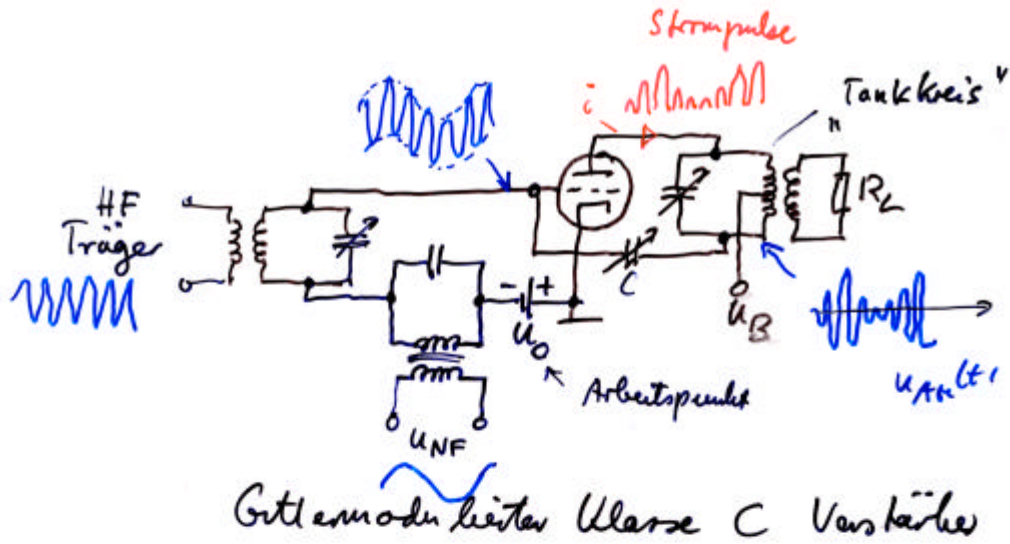 Strompulse
i
"Tankkreis"
HF
Träger
R_L
C
- +
U_0
U_B
Arbeitspunkt
u_AM(t)
U_NF
Gittermodulierter Klasse C Verstärker